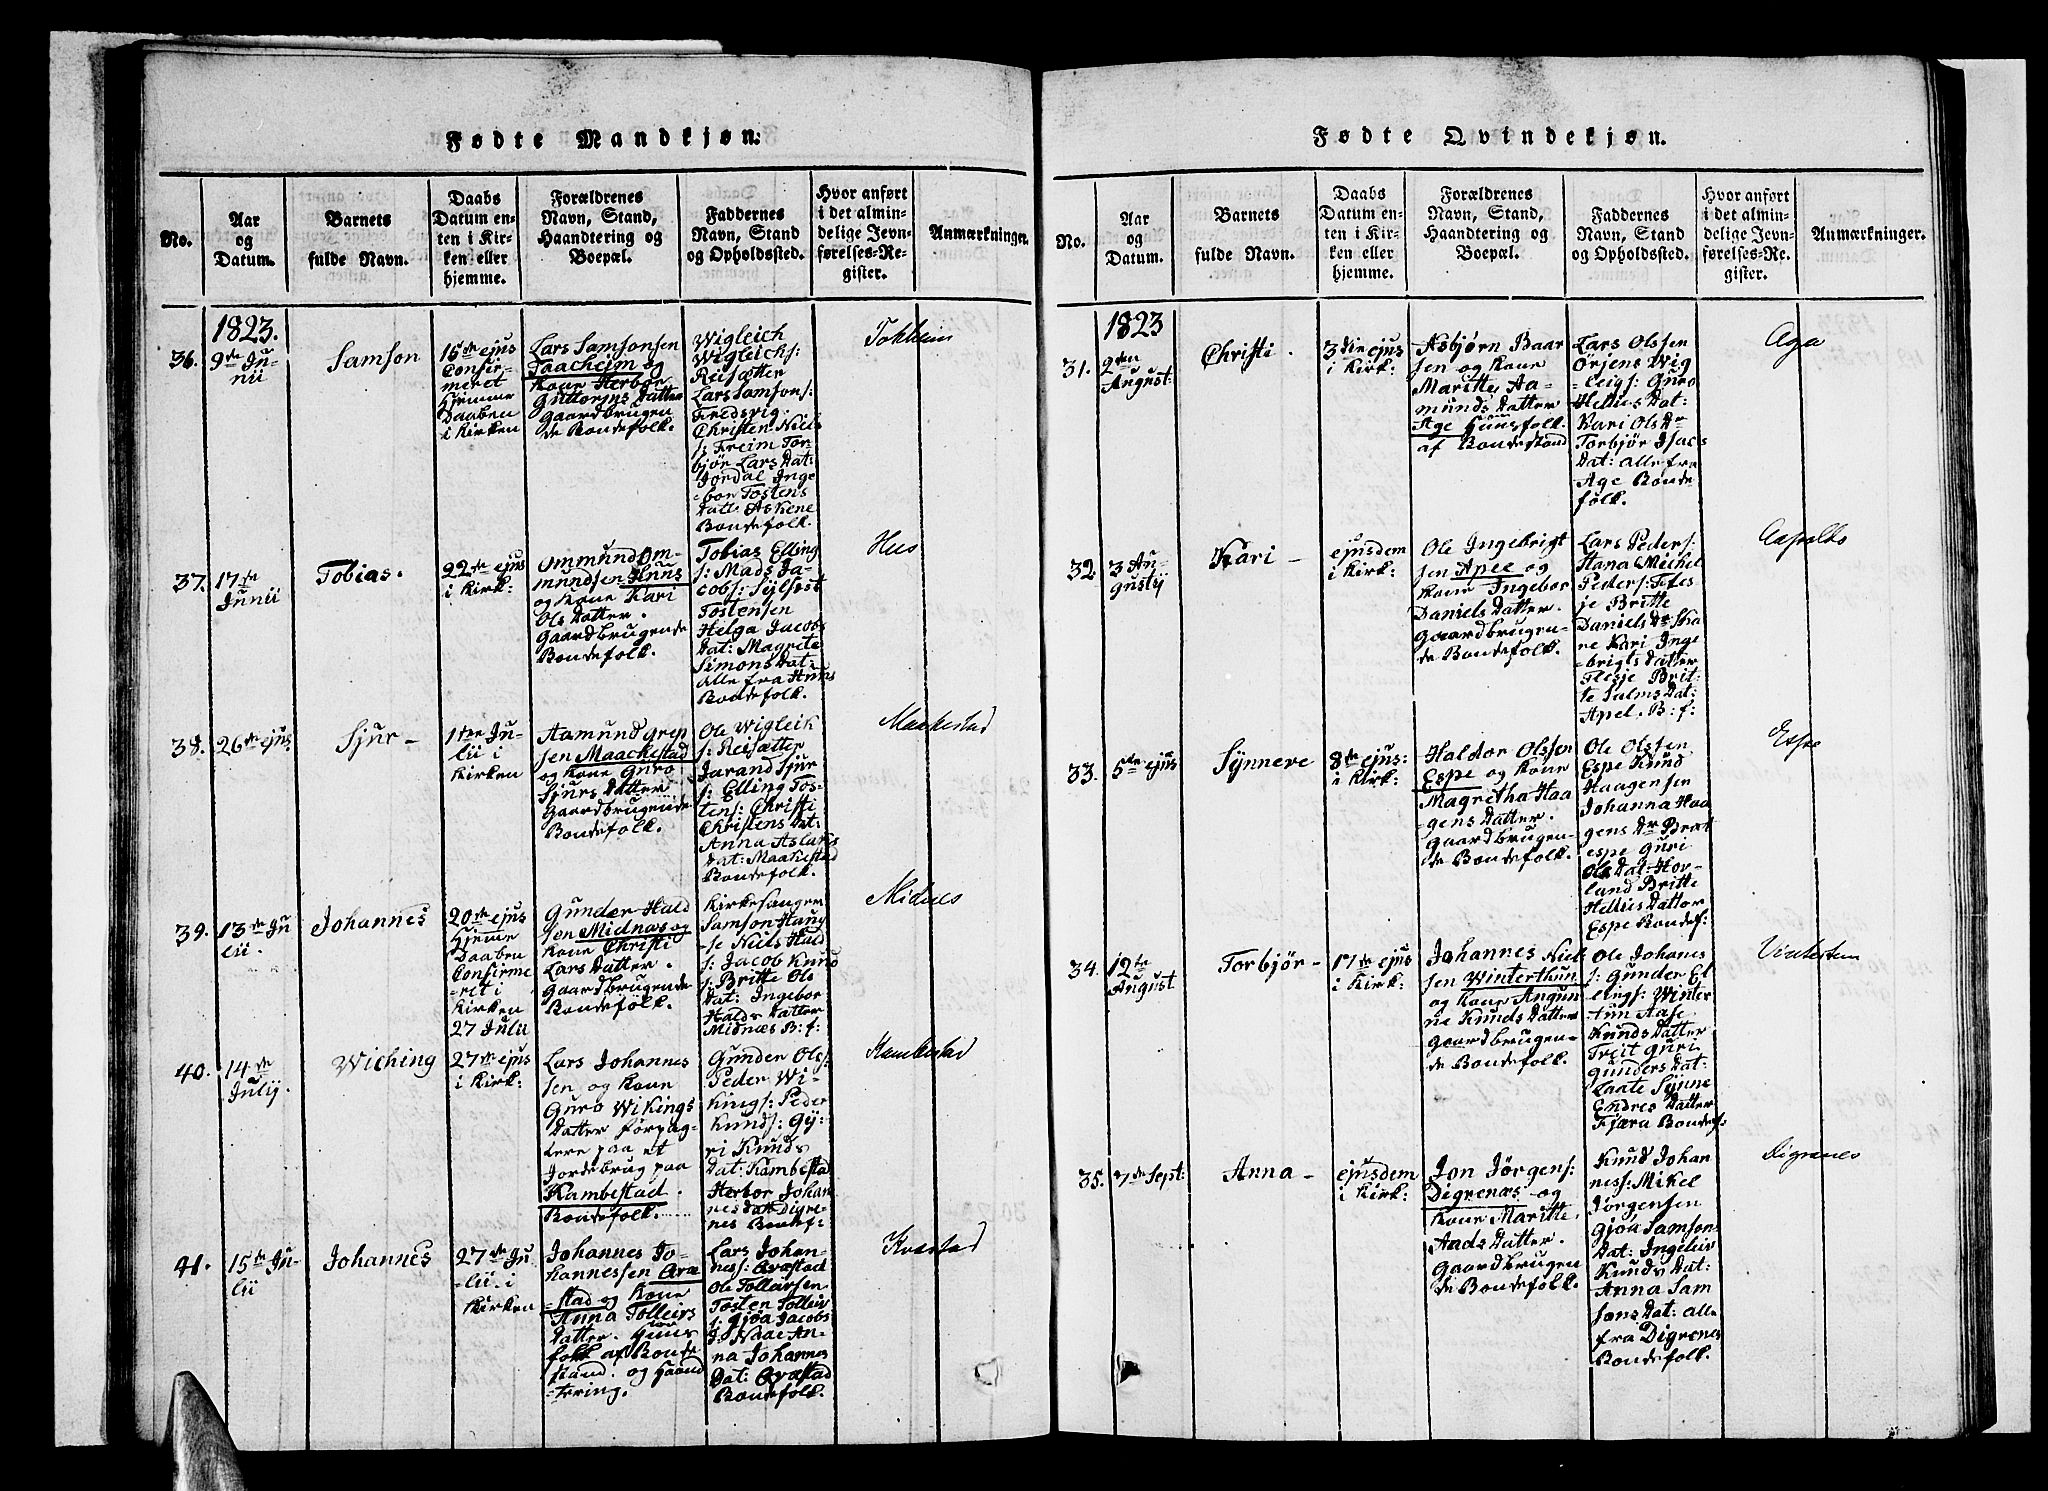 Fødte Mandkjøn:
No.
Aar
og
Datum.
Barnets
fulde Navn.
Daabs
Datum en-
ten i Kir-
ken eller
hjemme.
Forældrenes
Navn, Stand,
Haandtering og
Boepæl.
Faddernes
Navn, Stand
og Opholdssted.
Hvor anført
i det almin-
delige Jevn-
førelses-Re-
gister.
Anmærkninger.
1823.
36.
9de Ju-
nii
Samson
15de ejus
Confir-
meret
Hjemme
Daaben
i Kirken
Lars Samsonsen
Taacheim og
Kone Herbor
Guttorms Datter
Gaardbrugen
de Bondefolk.
Wigleich
Wigleichs:
Reisætter
Lars Samsons:
Fredsvig.
Christen Niels
s: Freim Tor-
bjør Lars Dat:
Jordal Inge
-bor Tostens
Datt: Askene
Bondefolk.
Tokheim
37.
17de
Junii
Tobias.
22de ejus
i Kirk:
Ommund Om-
mundsen Huus
og Kone Kari
Ols Datter.
Gaardbrugende
Bondefolk.
Tobias Elling
s: Mads Ja-
cobs: Sylfest
Tostensen
Helga Jacobs
Dat: Magrete
Simons Dat:
alle fra Huus
Bondefolk.
Hus
38.
26de ejus
Sjur -
1ste Ju-
lii i
Kirken
Aamund Grep
sen Maachestad
og Kone Guro
Sjurs Datter
Gaardbrugende
Bondefolk.
Ole Wigleik
s: Reisætter
Jarand Sjur
s: Elling Tos-
tens: Christi
Christens Dat:
Anna Aslaks
Dat: Maakestad
Bondefolk.
Maakestad
39.
13de Ju-
lii.
Johannes
20de ejus
Hjeme
Daaben
Confirme
-ret i
Kirken
27 Julii
Gunder Hald
sen Midnæs og
Kone Christi
Lars Datter.
Gaardbrugende
Bondefolk.
Kirkesanger
Samson Haug
se Niels Hald
s: Jacob Knud
s: Britte Ols
Dat: Ingebor
Halds Datter
Midnæs B: f:
Midnes
40.
14de
July.
Wiching
27de ejus
i Kirk:
Lars Johannes
sen og Kone
Guro Wikings
Datter Forpag-
tere paa et
Jordebrug paa
Kambestad.
Bondefolk.
Gunder Ols:
Peder Wi-
kings: Peder
Knuds: Gy-
ri Knuds
Dat: Kambestad
Herbor Johan
nes Datt Digre-
nes Bondef:
Kambestad
41.
15de Ju-
lii
Johannes
27de Ju
-lii i
Kirken
Johannes Jo-
hannessen Qvæ
-stad og Kone
Anna Tolleivs
Datter. Huus
folk af Bonde
stand. og Haand
tering.
Lars Johan-
nes: Qvæstad
Ole Tolleivsen
Tosten Tolleiv
s: Gjøa Jacobs
D: Naae An-
na Johannes
Dat: Qvæstad
Bondefolk.
Kvæstad
Fødte Qvindekjøn.
No.
Aar
og
Datum.
Barnets
fulde Navn.
Daabs
Datum en-
ten i Kir-
ken eller
hjemme.
Forældrenes
Navn, Stand,
Haandtering og
Boepæl.
Faddernes
Navn, Stand
og Opholdssted.
Hvor anført
i det almin-
delige Jevn-
førelses-Re-
gister.
Anmærkninger.
1823
31.
2den
August:
Christi.
3die ejus
i Kirk:
Asbjørn Baar
sen og Kone
Maritte Aa-
munds Datter
Age Huusfolk.
af Bondestand
Lars Olssen
Ørjens Wig
-leigs: Guro
Helliis Dat:
Kari Ols Dr
Torbjør Isacs
Dat: alle fra
Age Bonde
folk.
Aga
32
3 Au-
gusty
Kari -
ejusdem
i Kirk:
Ole Ingebrigt
sen Apee og
Kone Ingebor
Daniels Datter.
Gaardbrugen-
de Bondefolk.
Lars Peders:
Hana Michel
Peders: Tres
je Britte
Daniels Dr Ska
re Kari Inge
-brigts Datter
Tlesje Brit-
te Salms Dat:
Apel. B: f:
33.
5te ejus
Synneve
8de ejus:
i Kirk:
Haldor Olssen
Espe og Kone
Magretha Haa
-gens Datter.
Gaardbrugen-
de Bondefolk.
Ole Olssen
Espe Knud
Haagensen
Johanna Haa
gens Dr Bræt
espe Guri
Ols Dat: Hov-
land Britte
Helliis Datter
Espe Bondef:
Espe
34.
12te
August
Torbjør -
17de ejus
i Kirk:
Johannes Niel
sen Winterthun
og Kone Angun
ne Knuds Datter
Gaardbrugen-
de Bondefolk.
Ole Johanes
s: Gunder El
lings: Winter
tun Aase
Knuds Datter
Treit Guri
Gunders Dat:
Laate Synne
Endres Datter
Fjæra Bondef:
Vintertun
35.
7de Sept:
Anna -
ejusdem
i Kirk:
Jon Jørgens:
Digrenæs og
Kone Maritte
Aads Datter.
Gaardbrugen
de Bondefolk.
Knud Johan
ness: Mikel
Jørgensen
Gjøa Samson-
Dat: Ingeleiv
Knuds Dat:
Anna Sam
sons Dat: alle
fra Digrenes
Bondefolk.
Digrenes